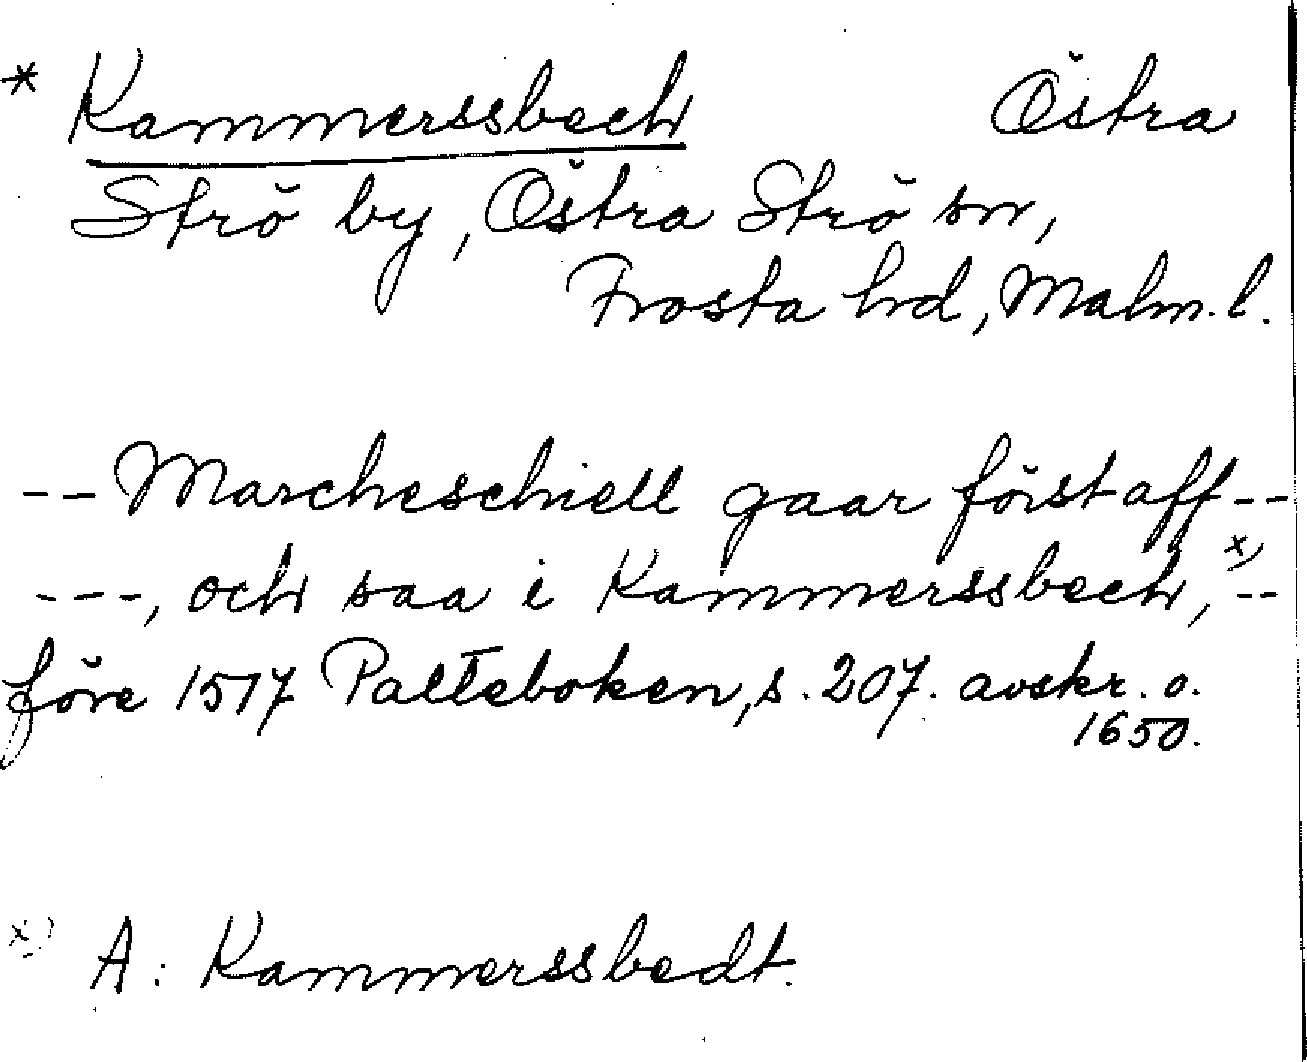 * Kammerssbech Östra
Strö by, Östra Strö sn,
Frosta hd, Malm. l.
-- Marcheschiell gaar först aff --
---, och saa i Kammerssbech, x) --
före 1517 Palteboken, s. 207. avskr. o.
1650.
x) A: Kammerssbedt.